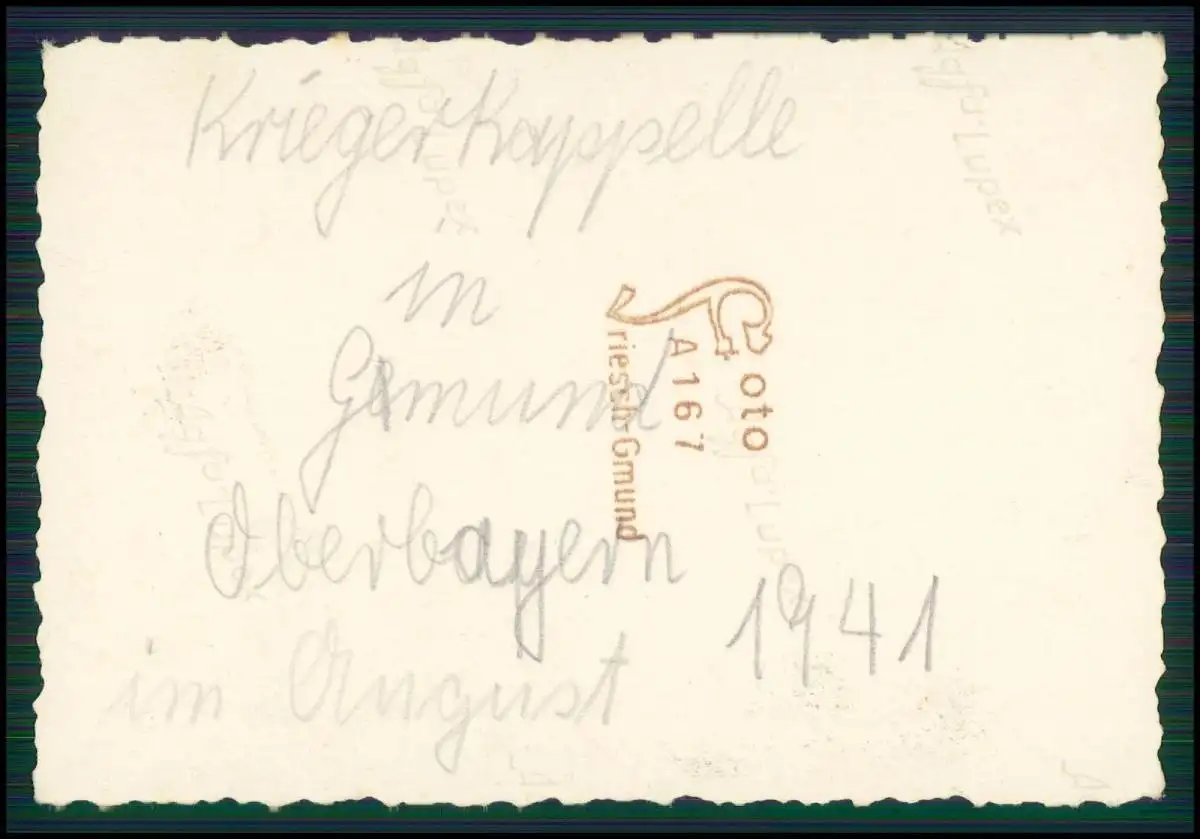 Kriegerkappelle
in
Gmund
Oberbayern
im August 1941
Foto
A 167
Friesch-Gmund
Agfa-Lupex
Agfa-Lupex
Agfa-Lupex